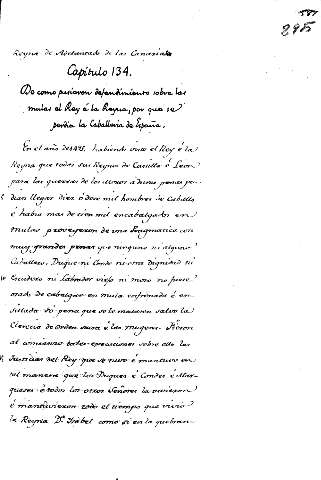 295
Reyna de Adelantado de las Canarias
Capítulo 134.
De como pusieron defendimiento sobre las
mulas el Rey é la Reyna, por que se
perdia la Caballeria de España.
En el año de visto el Rey é la
Reyna que todos sus Reynos de Castilla é Leon
para las guerras de los Moros a duras penas po-
dian llegar diez ó doce mil hombres de Caballo
é habia mas de cien mil encabalgados en
mulas proveyeron de una Pragmatica con
muy grandes penas que ninguno ni alguno
Caballero, Duque ni Conde ni otra Dignidad ni
Escudero ni Labrador viejo ni mozo no fuese
osado de cabalgar en mula enfrenada é en-
sillada só pena que se la matasen salvo la
Clerecia de orden sacra é las mugeres. Fueron
al comienzo tales execuciones sobre ello las
Justicias del Rey que se tuvo é mantuvo en
tal manera que los Duques é Condes é Mar-
queses é todos los otros Señores la tuvieron
é mantuvieron todo el tiempo que vivió
la Reyna Dª Isabel como si en la quebran-